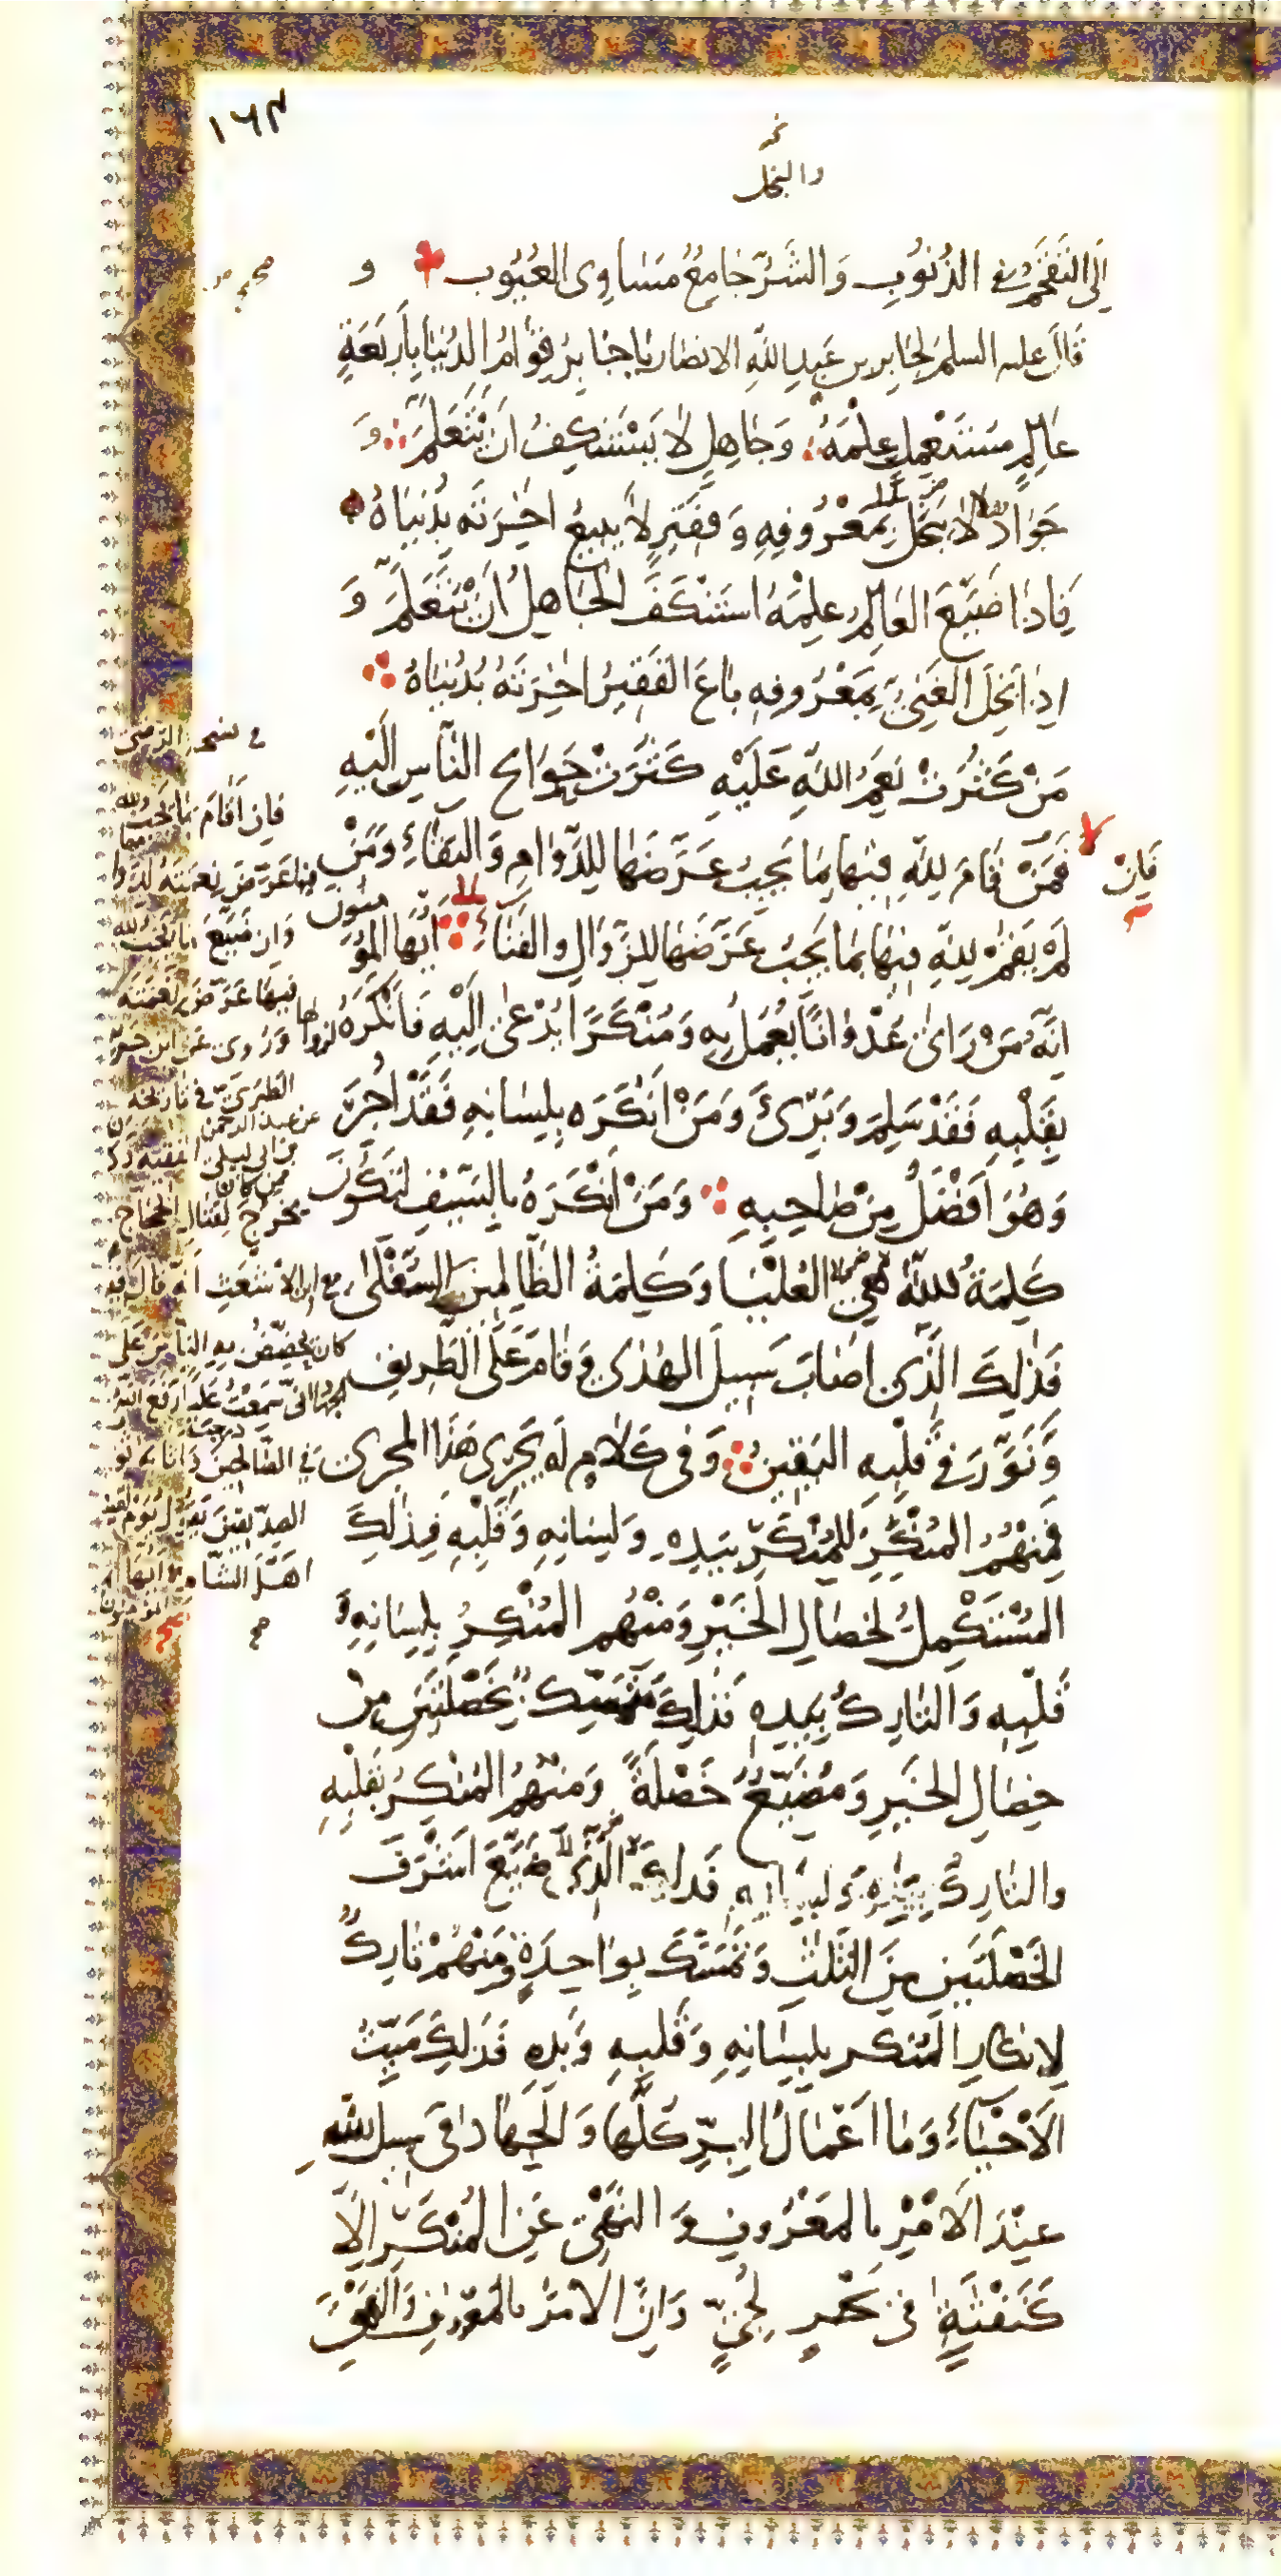 ١٦٣
خ
والبخل
اِلَى التَّقَحُّمِ فِى الذُنُوبِ وَالشَّرُّ جَامِعُ مَسَاوِى العُيُوبِ و
صح
قَالَ عليه السلم لِجَابِرِ بنِ عَبدِ اللهِ الانصَارى يَا جَابِرُ قِوَامُ الدُنيَا بِاَربَعَةٍ
عَالِمٍ مستَعْمِلٍ عِلْمَهُ وَجَاهِلٍ لَا يَسْتَنكِفُ اَن يَتَعَلَّمَ وَ
جَوَادٍ لا يَبخَلُ بِمَعْرُوفِهِ وَفَقيرٍ لَا يَبِيعُ اخِرَتَه بِدُنيَاهُ
فَاِذَا ضَيَّعَ العَالِمُ عِلمَهُ استَنْكَفَ الجَاهِلُ اَنْ يَتَعَلَّمَ وَ
اِذَا بَخِلَ الغَنِىُّ بِمَعْرُوفِهِ بَاعَ الفَقِيرُ اخِرَتَهُ بِدُنيَاهُ
مَنْ كَثُرَتْ نِعَمُ اللهِ عَلَيْهِ كَثُرَتْ حَوَائِج النَّاسِ اِلَيْهِ
فَمَنْ قَامَ لِلّهِ فِيهَا بِمَا يَجِبُ عَرَّضَهَا لِلدَّوَامِ وَالبَقَاءِ وَمَنْ
فَاِنْ
لَمْ يَقُمْ لِلّهِ فِيهَا بِمَا يَجِبُ عَرَّضَهَا لِلزَّوَالِ والفَنَاءِ اَيُّهَا المُؤمنون
اِنَّهُ مَنْ رَاى عُدْوَانًا يُعْمَلُ بِهِ وَمُنْكَرًا يُدْعَى اِلَيْهِ فَاَنْكَرَهُ
بِقَلْبِهِ فَقَدْ سَلِمَ وَبَرِئَ وَمَنْ اَنكَرَه بِلِسَانِهِ فَقَدْ اُجِرَ
وَهُوَ اَفْضَلُ مِنْ صَاحِبِهِ وَمَنْ اَنْكَرَهُ بِالسَّيفِ لِتَكُونَ
كَلِمَةُ اللهِ هِىَ العُلْيَا وَكَلِمَةُ الظَّالِمِينَ السُّفْلَى
فَذَلِكَ الَّذِى اصَابَ سَبِيلَ الهُدَى وَقَامَ عَلَى الطَّرِيقِ
وَنَوَّرَ فِى قَلْبِهِ اليَقِينُ وَفى كَلامٍ لَه يَجرِى هَذَا المجرى
فَمِنْهُمُ المُنْكِرُ لِلْمُنْكَرِ بِيَدِهِ وَلِسَانِهِ وَقَلْبِهِ فَذَلِكَ
المُسْتَكْمِلُ لِخِصَالِ الخَيْرِ وَمِنْهُم المُنْكِرُ بِلِسَانِهِ وَ
قَلْبِهِ وَالتَارِكُ بِيَدِهِ فَذَلِكَ مُتَمَسِّكٌ بِخَصْلَتَيْنِ مِنْ
خِصَالِ الخَيرِ وَمُضَيِّعٌ خَصْلَةً وَمِنْهُمُ المُنْكِرُ بِقَلْبِهِ
والتَارِكُ بِيَدِهِ وَلِسَانِهِ فَذلك الَّذِى ضَيَّعَ اَشْرَفَ
الخَصْلَتَينِ مِنَ الثَّلثِ وَتَمَسَّكَ بِوَاحِدَةٍ وَمِنْهُمْ تَارِكٌ
لِاِنكَارِ المُنكَرِ بِلِسَانِهِ وَقَلبِهِ وَيَدِهِ فَذَلِكَ مَيِّتُ
الاَحْيَاءِ وَمَا اَعْمَالُ البِرِّ كُلُّهَا وَالجِهَادُ فِى سبيل اللهِ
عِنْدَ الاَمْرِ بِالمَعْرُوفِ وَالنَّهْىِ عَنِ المُنكَرِ اِلَّا
كَنَفْثَةٍ فى بَحْرٍ لُجِّىٍّ وَاِنَّ الاَمْرَ بِالمَعرُوفِ وَالنَّهْىَ
فى نسخة الرضى
فَاِن اَقَامَ بمَا يَجِبُ لله
فيها عَرَّضَ نِعمَتَهُ لدَوامها
وَاِن ضَيَّعَ مَا يَجِبُ لله
فيهَا عَرَّضَ نِعْمَتَهُ
لزوالها وَرَوى عَن ابن جَرير
الطَبَرِىّ فى تاريخه
عن عبد الرحمن
بن ابى ليلى الفقيه وكان
ممن كان
يخرج لِقِتَالِ الحجاج
مع ابن الاشعَثِ انّه قَالَ فيما
كان يحضّضُ به النَّاسَ عَلَى
الجِهَاد انّى سَمِعْتُ عَليًا رَفَعَ اللهُ
دَرَجَتَهُ
فى الصَّالحِينَ واثابه ثواب
الصدّيقينَ يَقولُ يَوْمَ لقينا
اهْلَ الشَّام ايّهَا
المؤمنون
صح